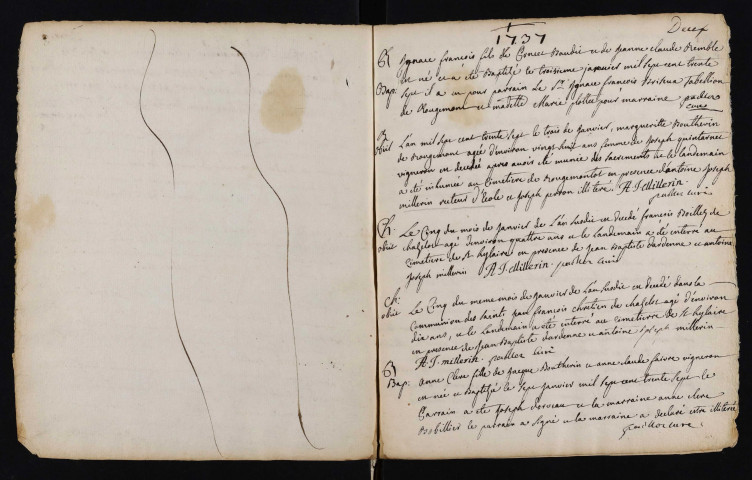 Deux
1737
R. Ignace françois fils de Bonnet Baudié et de jeanne claude
est né et a été Baptisé le troisieme janvier mil sept cent trente
Bap: sept il a eu pour parrain le Sr. Ignace françois tabellion
de Rougemont et madelle Marie pour marraine
curé
R. L'an mil sept cent trente sept le trois de janvier, margueritte Boutherin
obiit de Rougemont agée d'environ vingt huit ans femme de joseph quintarnet
vigneron est decedée apres avoir été munie des sacrements et le landemain
a été inhumée au Cimetiere de rougemontot en presence d'antoine joseph
millerin recteur d'Ecole et joseph illiteré. A J Millerin
curé
Ch. Le Cinq du mois de janvier de l'an susdit est decedé francois Boillet de
obiit chazelot agé d'environ quattre ans et le landemain a été interré au
Cimetiere de St hylaire en presence de jean Baptiste dardenne et antoine
joseph millerin A J. Millerin. curé
Ch. Le Cinq du meme mois de janvier de l'an susdit est decedé dans la
obiit Communion des saints jean francois chretien de chazelot agé d'environ
dix ans, et le landemain a été interré au cimetierre de St hylaire
en presence de jean Baptiste dardenne et antoine joseph millerin
A J. millerin. curé
R. anne Clere fille de jacque Boutherin et anne claude faivre vigneron
Bap: est née et Baptisée le sept janvier mil sept cent trente sept le
parrain a été joseph et la marraine anne clere
Bobillier le parrain a signé et la marraine a declaré etre illiterée
curé